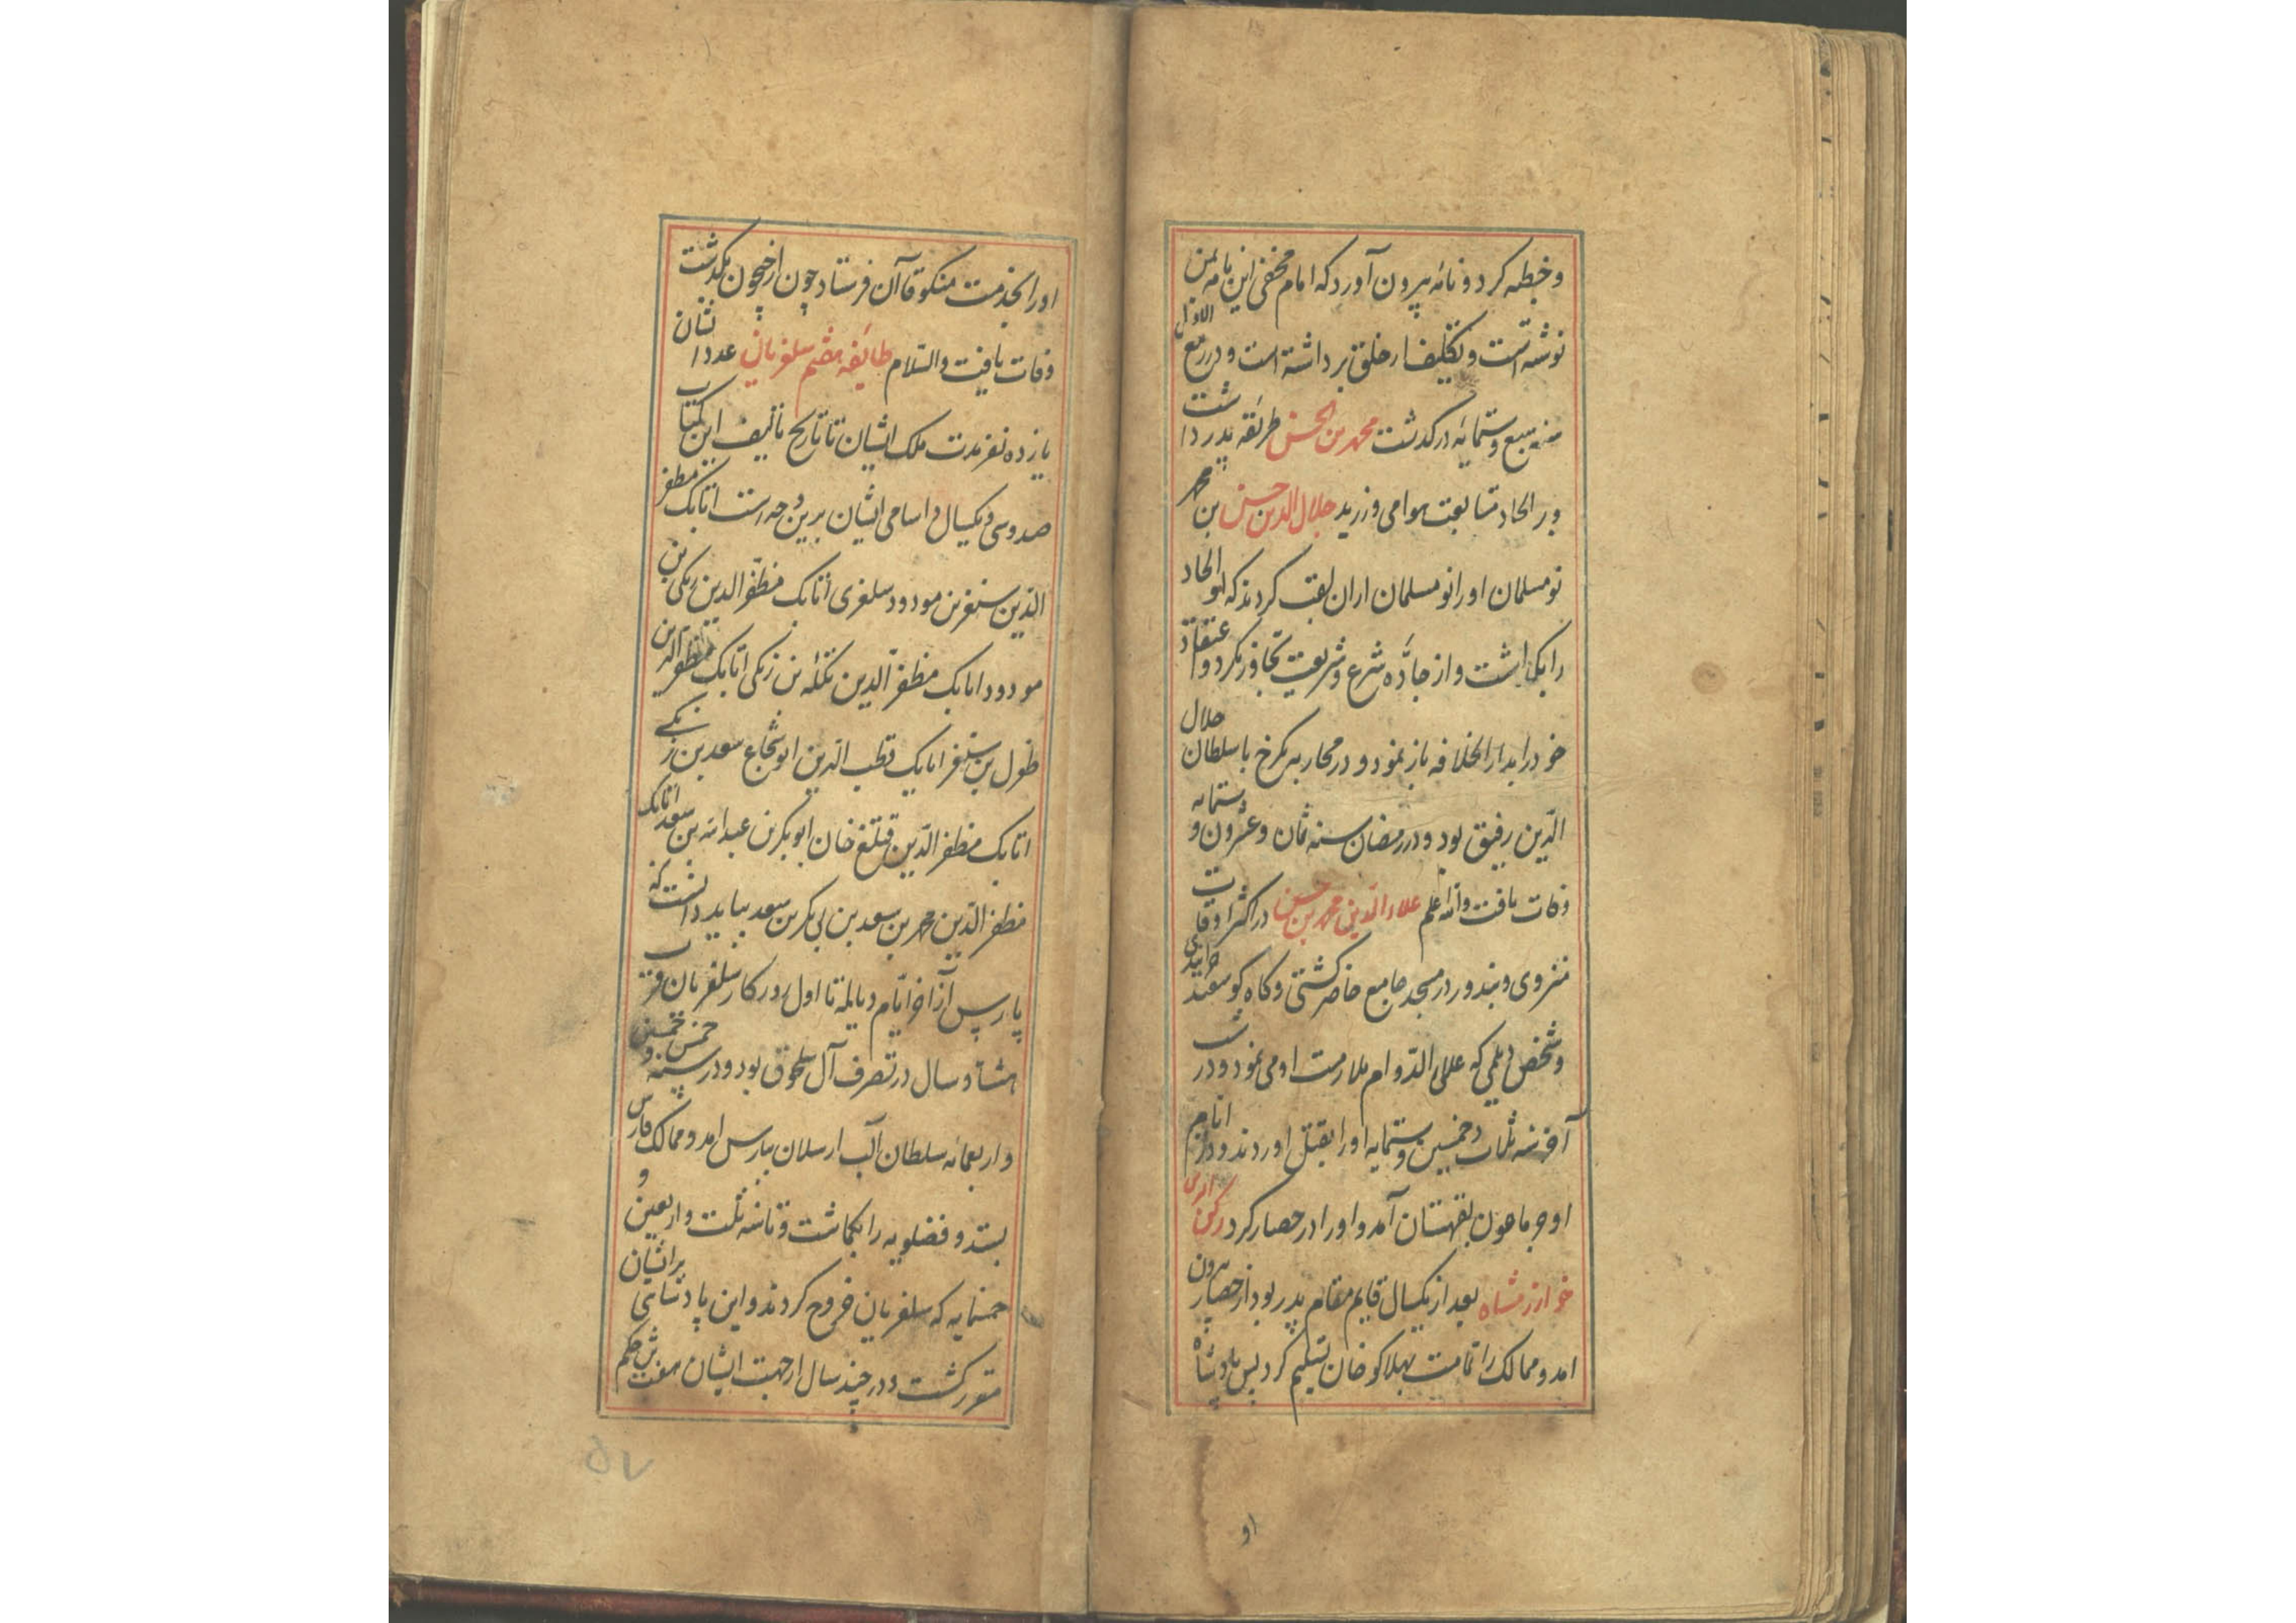 وخطبه کرد و نامه بیرون آورد که امام مخفی این نامه بمن
نوشته است و تکلیف از خلق برداشته است و در ربیع الاول
سنه سبع وستمایه درگذشت محمد بن الحسن طریقه پدر داشت
و بر الحاد متابعت هوا می ورزید جلال الدین حسن بن محمد
نومسلمان او را نومسلمان ازان لقب کردند که او الحاد
را بگذاشت و از جادّه شرع و شریعت تجاوز نکرد و اعتقاد
خود را بدار الخلافه باز نمود و در محاربه کرخ با سلطان جلال
الدّین رفیق بود و در رمضان سنه ثمان وعشرون وستمایه
وفات یافت والله اعلم علاء الدّین محمد بن حسن در اکثر اوقات
منزوی و بندور در مسجد جامع حاضر گشتی و گاه گوسفند
وشخص دیلمی که علی الدّوام ملازمت او می نمود و در شب
آخر سنه ثلاث وخمسین وستمایه او را بقتل اوردند و در ایام
او جرماغون بقهستان آمد و او را در حصار کرد رکن الدین
خوارزمشاه بعد از یکسال قایم مقام پدر بود از حصار بیرون
امد و ممالک را تمامت بهلاکو خان تسلیم کرد پس پادشاه
او
او را بخدمت منکوقاآن فرستاد چون از جیحون بگذشت
وفات یافت والسّلام طایفه هفتم سلغریان عدد ایشان
یازده نفر مدت ملک ایشان تا تاریخ تألیف این کتاب
صد و سی و یکسال و اسامی ایشان برین وجه است اتابک مظفر
الدّین سنقر بن مودود سلغری اتابک مظفّر الدین زنکی بن
مودود اتابک مظفر الدین تکله بن زنکی اتابک مظفر الدین
طغرل بن سنقر اتابک قطب الدّین ابو شجاع سعد بن زنکی
اتابک مظفر الدّین قتلغ خان ابوبکر بن عبدالله بن سعد اتابک
مظفر الدّین محمد بن سعد بن ابی بکر بن سعد بباید دانست که
پارس از آخر ایّام دیالمه تا اول روزکار سلغریان قرب
هشتاد سال در تصرف آل سلجوق بود و در سنه خمس و خمسین
واربعمائه سلطان الب ارسلان بپارس امد و ممالک فارس
بستد و فضلویه را بکماشت و تا سنه ثلث واربعین و
خمسمایه که سلغریان خروج کردند و این پادشاهی بر ایشان
مقرر گشت و در چند سال از جهت ایشان هفت شش حکم
۵۷